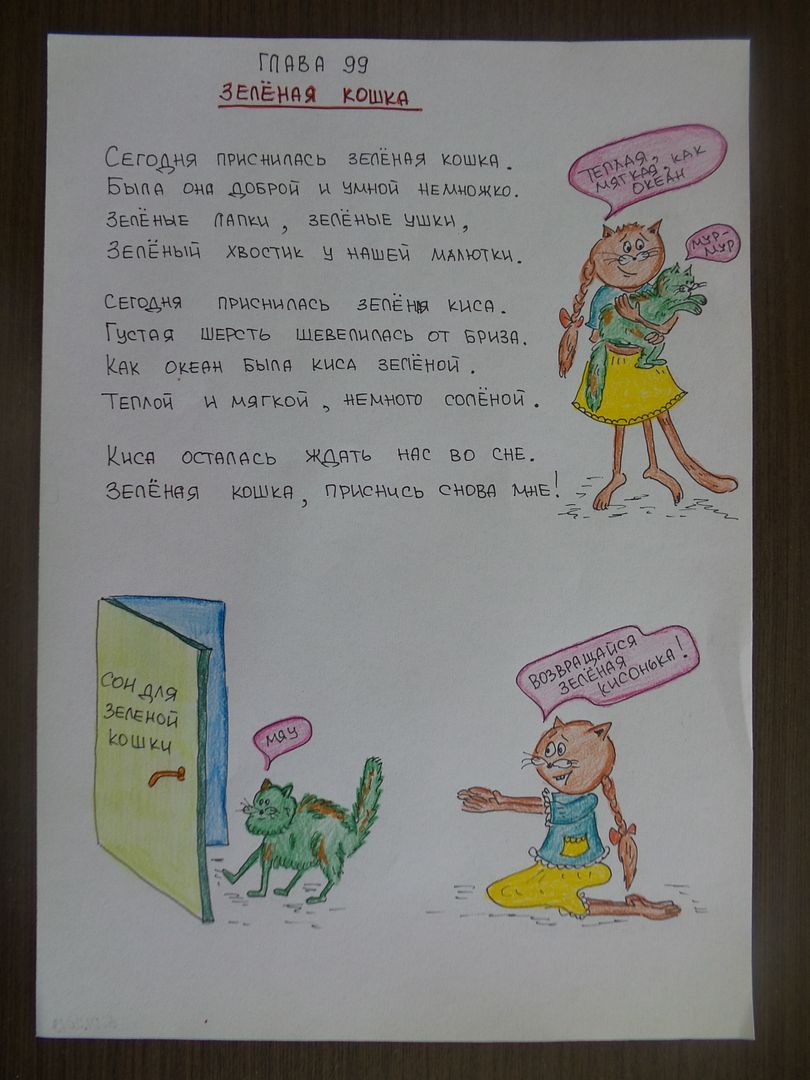 ГЛАВА 99
ЗЕЛЁНАЯ КОШКА
СЕГОДНЯ ПРИСНИЛАСЬ ЗЕЛЁНАЯ КОШКА.
БЫЛА ОНА ДОБРОЙ И УМНОЙ НЕМНОЖКО.
ЗЕЛЁНЫЕ ЛАПКИ, ЗЕЛЁНЫЕ УШКИ,
ЗЕЛЁНЫЙ ХВОСТИК У НАШЕЙ МАЛЮТКИ.
СЕГОДНЯ ПРИСНИЛАСЬ ЗЕЛЁНЯ КИСА.
ГУСТАЯ ШЕРСТЬ ШЕВЕЛИЛАСЬ ОТ БРИЗА.
КАК ОКЕАН БЫЛА КИСА ЗЕЛЁНОЙ.
ТЕПЛОЙ И МЯГКОЙ, НЕМНОГО СОЛЁНОЙ.
КИСА ОСТАЛАСЬ ЖДАТЬ НАС ВО СНЕ.
ЗЕЛЁНАЯ КОШКА, ПРИСНИСЬ СНОВА МНЕ!
ТЕПЛАЯ,
МЯГКАЯ, КАК
ОКЕАН
МУР-
МУР
СОН ДЛЯ
ЗЕЛЕНОЙ
КОШКИ
МЯУ
ВОЗВРАЩАЙСЯ
ЗЕЛЁНАЯ
КИСОНЬКА!